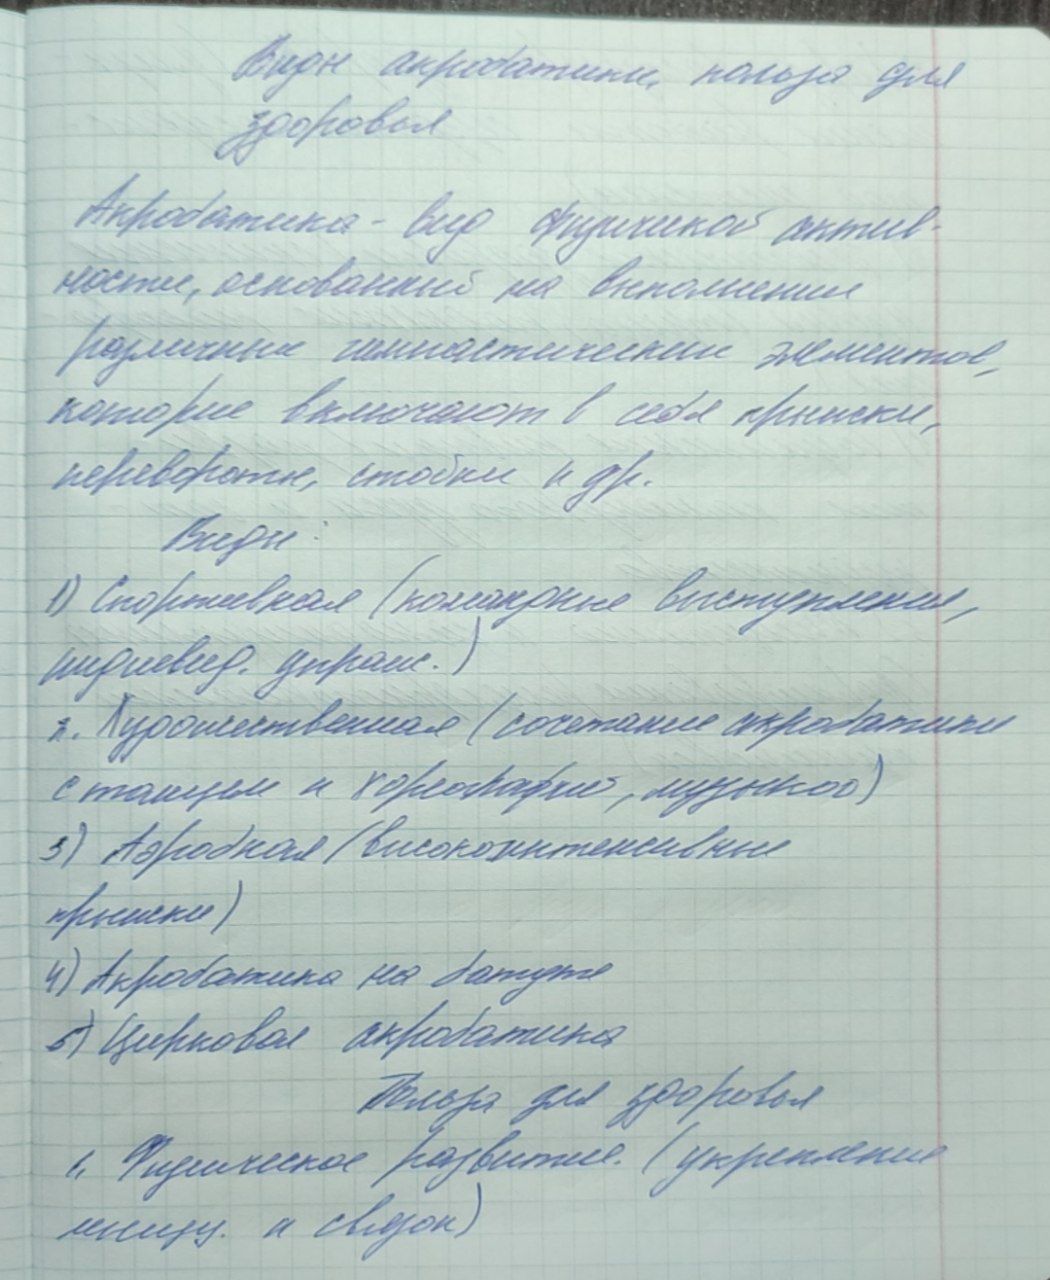 Виды акробатики, польза для
здоровья
Акробатика - вид физической актив-
ности, основанный на выполнении
различных гимнастических элементов,
которые включают в себя прыжки,
перевороты, стойки и др.
Виды:
1) Спортивная (командные выступления,
индивид. упраж.)
2. Художественная (сочетание акробатики
с танцем и хореографией, музыкой)
3) Аэробная (высокоинтенсивные
прыжки)
4) Акробатика на батуте
5) Цирковая акробатика
Польза для здоровья
1. Физическое развитие. (укрепление
мышц. и связок)